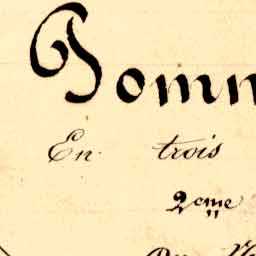 Pomm
En trois
2eme